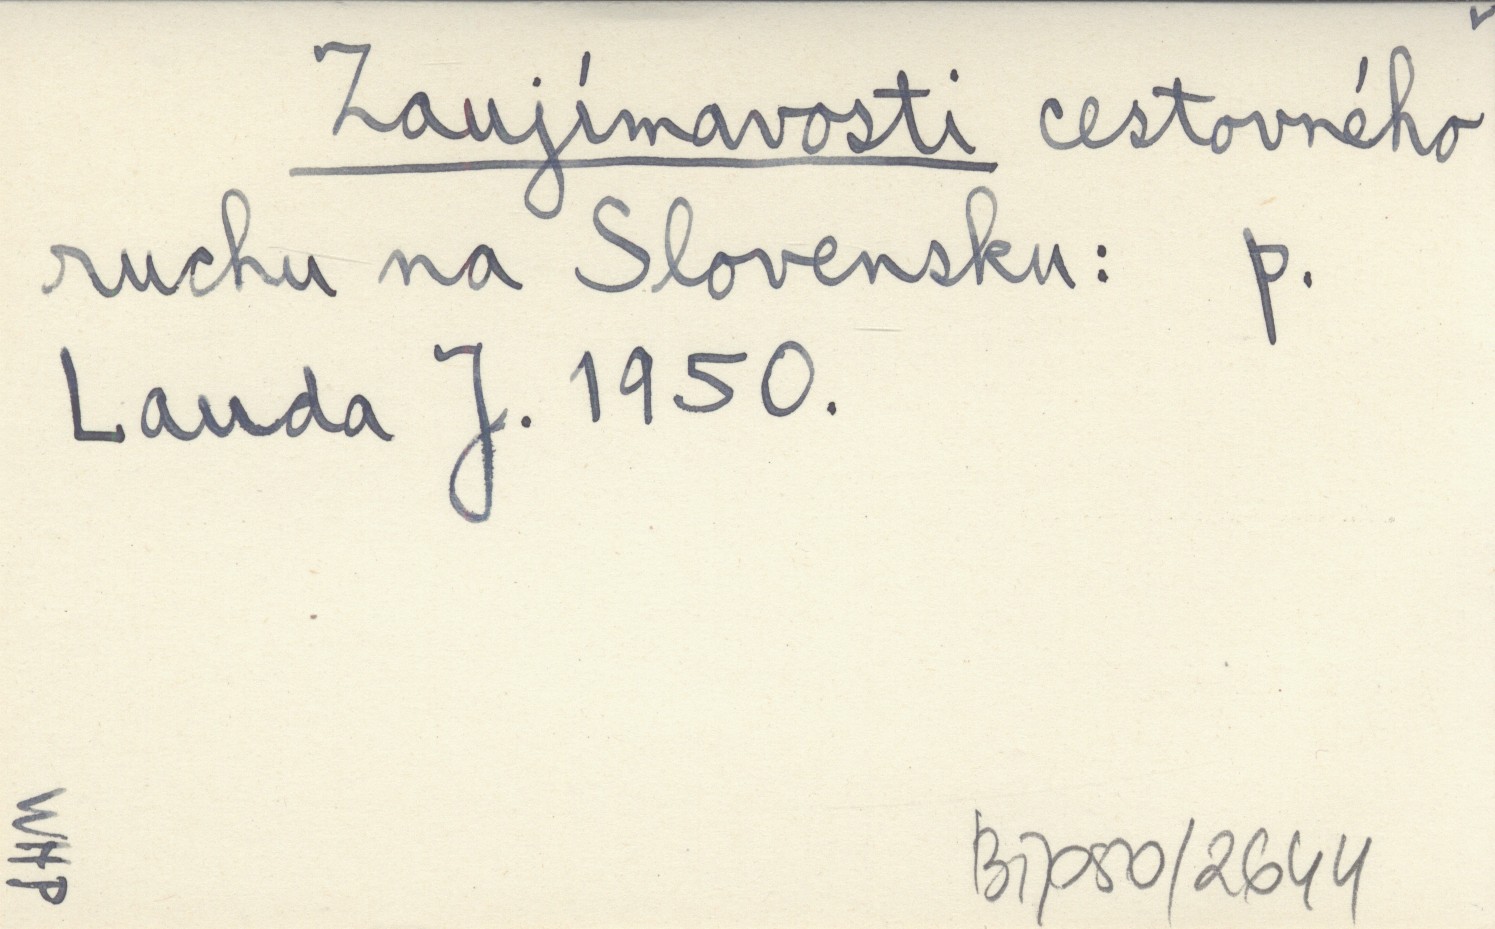 Zaujímavosti cestovného
ruchu na Slovensku: p.
Lauda J. 1950.
WHP